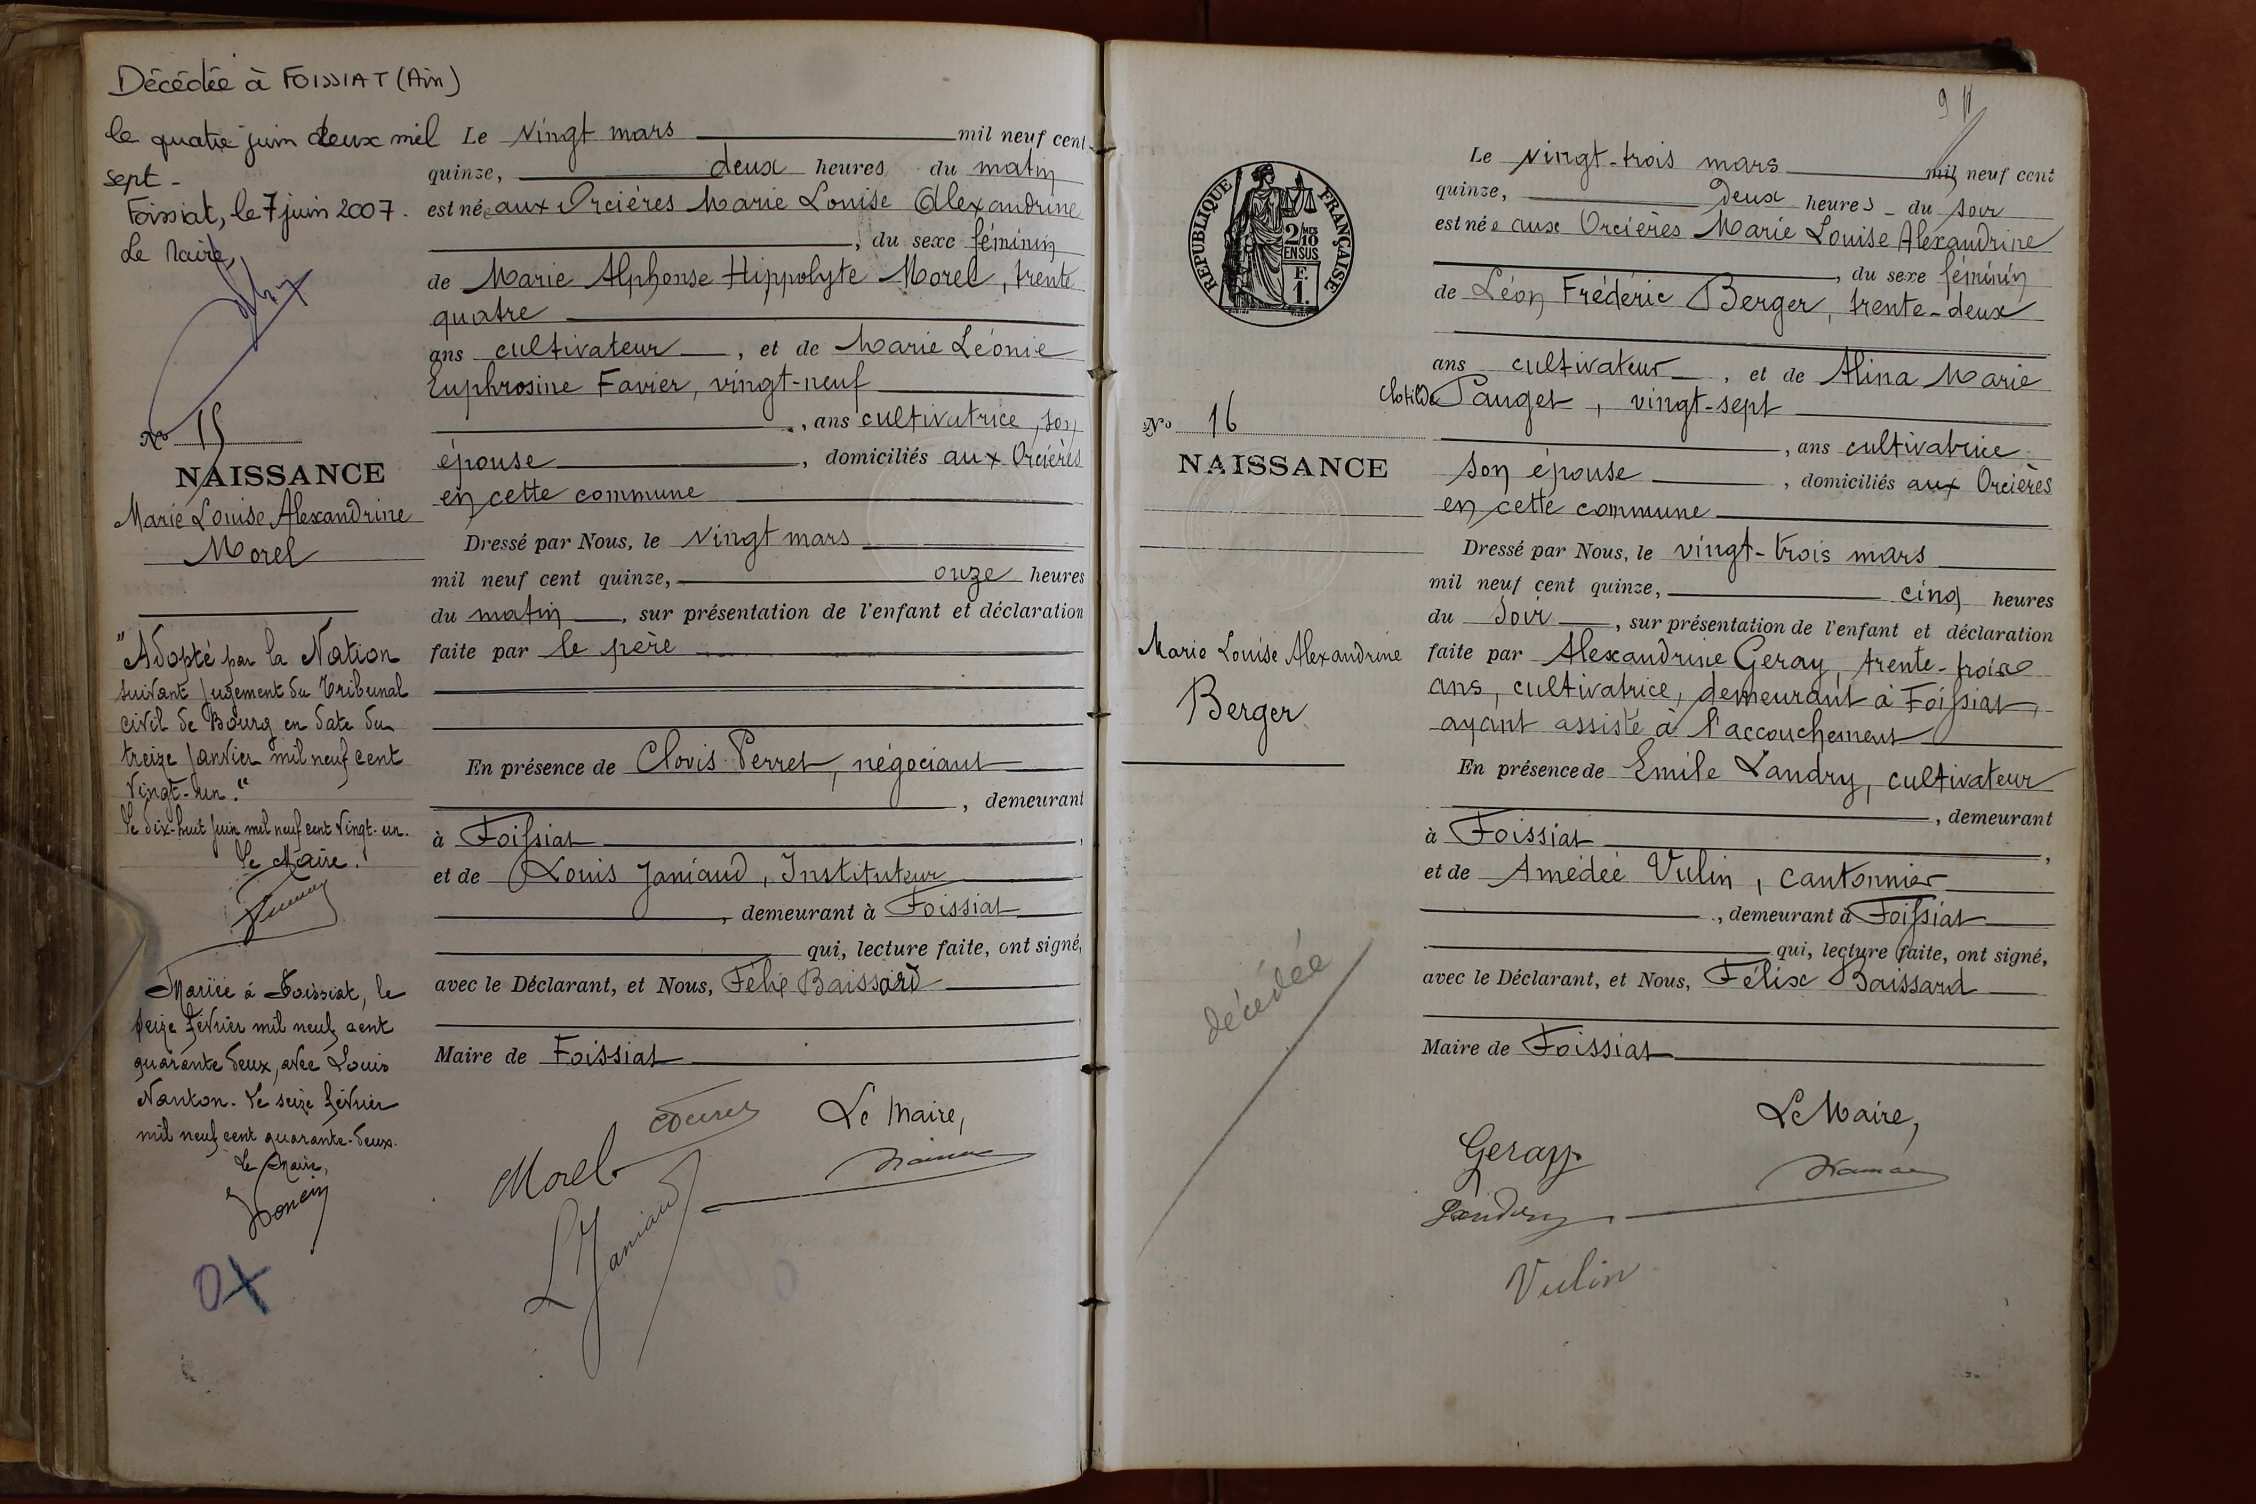 Décédée à FOISSIAT (Ain)
le quatre juin deux mil
sept -
Foissiat, le 7 juin 2007.
Le Maire,
No 15
NAISSANCE
Marie Louise Alexandrine
Morel
"Adopté par la Nation
suivant jugement du Tribunal
civil de Bourg en date du
treize janvier mil neuf cent
vingt-un."
Le dix-huit juin mil neuf cent vingt-un.
Le Maire.
Mariée à Foissiat, le
seize février mil neuf cent
quarante deux, avec Louis
Nanton. Le seize février
mil neuf cent quarante-deux.
Le Maire,
Le vingt mars mil neuf cent
quinze, deux heures du matin
est née aux Orcières Marie Louise Alexandrine
, du sexe féminin
de Marie Alphonse Hippolyte Morel, trente
quatre
ans cultivateur, et de Marie Léonie
Euphrosine Favier, vingt-neuf
, ans cultivatrice, son
épouse, domiciliés aux Orcières
en cette commune
Dressé par Nous, le vingt mars
mil neuf cent quinze, onze heures
du matin, sur présentation de l'enfant et déclaration
faite par le père
En présence de Clovis Perret, négociant
, demeurant
à Foissiat,
et de Louis Janiaud, Instituteur
, demeurant à Foissiat
qui, lecture faite, ont signé,
avec le Déclarant, et Nous, Félix Baissard
Maire de Foissiat
Le Maire,
Morel
L Janiaud
RÉPUBLIQUE FRANÇAISE
2/10
EN SUS
F.
1.
No 16
NAISSANCE
Marie Louise Alexandrine
Berger
décédée
Le vingt-trois mars mil neuf cent
quinze, deux heures du soir
est née aux Orcières Marie Louise Alexandrine
, du sexe féminin
de Léon Frédéric Berger, trente-deux
ans cultivateur, et de Alina Marie
Clotilde Pauget, vingt-sept
, ans cultivatrice
son épouse, domiciliés aux Orcières
en cette commune
Dressé par Nous, le vingt-trois mars
mil neuf cent quinze, cinq heures
du soir, sur présentation de l'enfant et déclaration
faite par Alexandrine Geray, trente-trois
ans, cultivatrice, demeurant à Foissiat,
ayant assisté à l'accouchement
En présence de Emile Landry, cultivateur
, demeurant
à Foissiat,
et de Amédée Vulin, cantonnier
, demeurant à Foissiat
qui, lecture faite, ont signé,
avec le Déclarant, et Nous, Félix Baissard
Maire de Foissiat
Le Maire,
Geray
Landry
Vulin